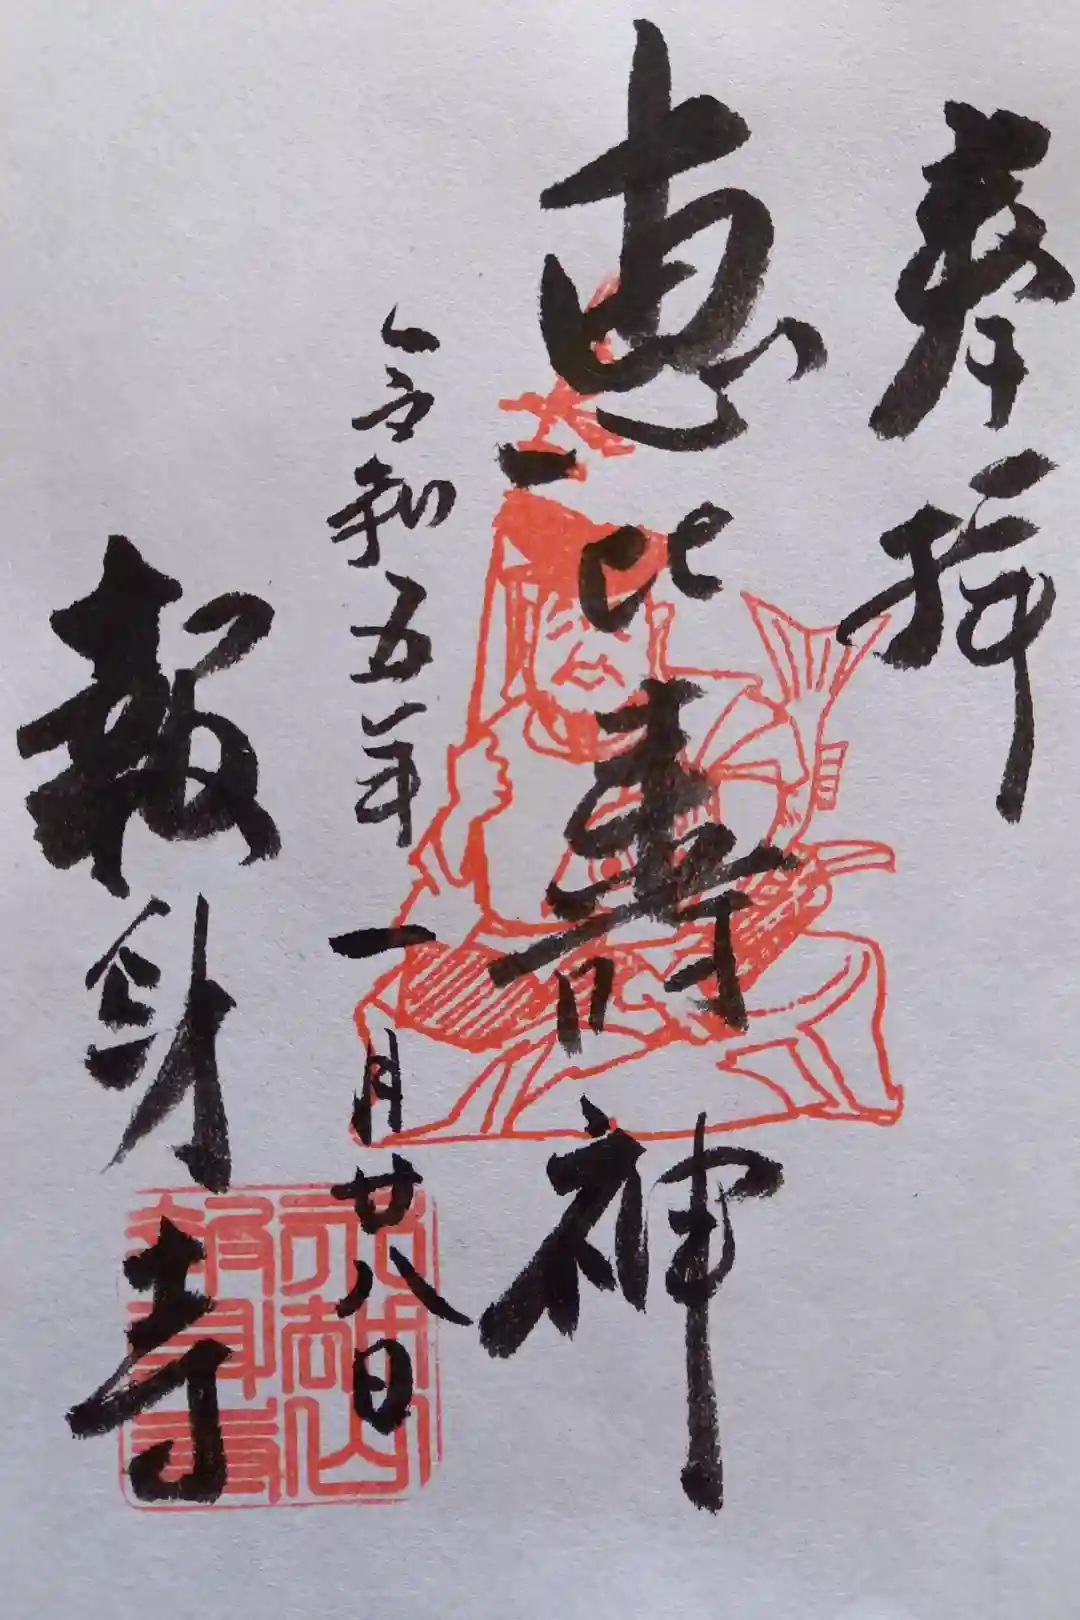 奉拝
恵比寿神
令和五年一月廿八日
報身寺